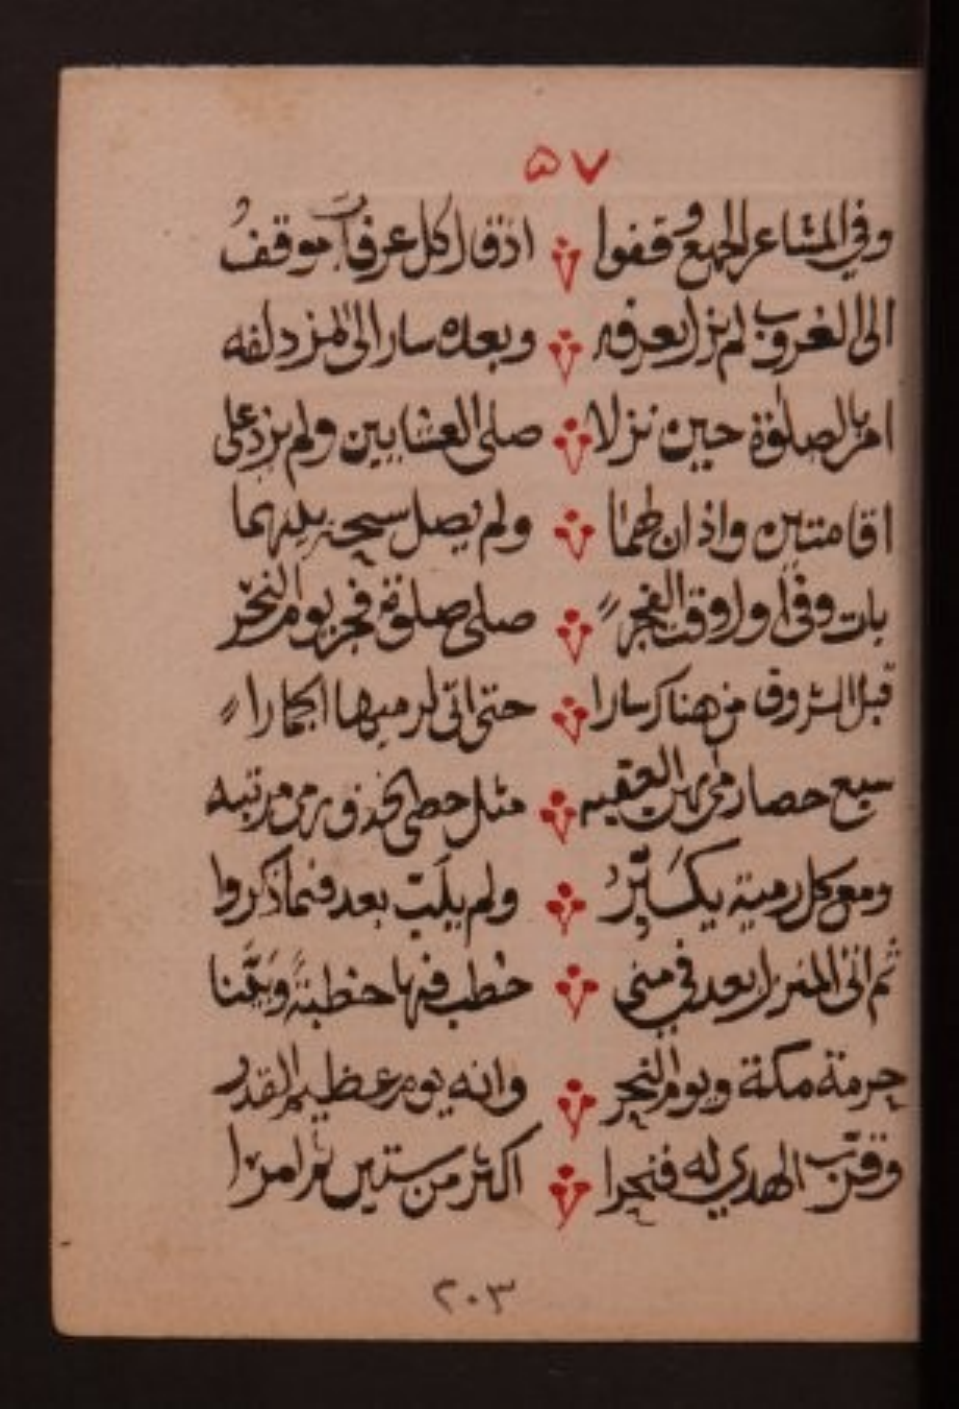 ٥٧
وفي المشاعر الجميع وقفوا اذ قال كل عرفات موقف
الى الغروب لم يزل بعرفه وبعده سار الى المزدلفه
امر بالصلوة حين نزلا صلى العشايين ولم يزد على
اقامتين واذان لهما ولم يصل سبحة يليهما
بات وفي اول وقت الفجر صلى صلوة فجر يوم النحر
قبل الشروق من هناك سارا حتى اتى لرميها الجمارا
سبع حصا رمى بهن العقبه مثل حصى الخذف رمى مرتبه
ومع كل رمية يكبّر ولم يلبّ بعد فيما ذكروا
ثم اتى المنزل بعد في منى خطب فيها خطبةً وبيّنا
حرمة مكة ويوم النحر وانه يوم عظيم القدر
وقرّب الهدي له فنحرا اكثر من ستين ثم امرا
٢٠٣